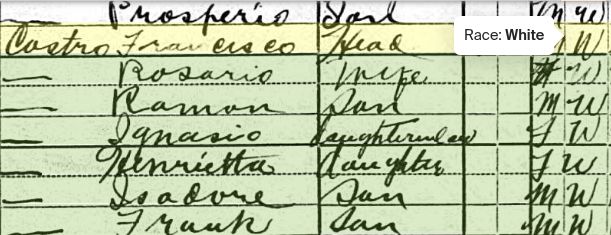 Prosperio Son M W
Castro Francisco Head W
Race: White
— Rosario Wife W
— Ramon Son M W
— Ignasio daughterinlaw F W
— Henrietta daughter F W
— Isadore Son M W
— Frank Son M W